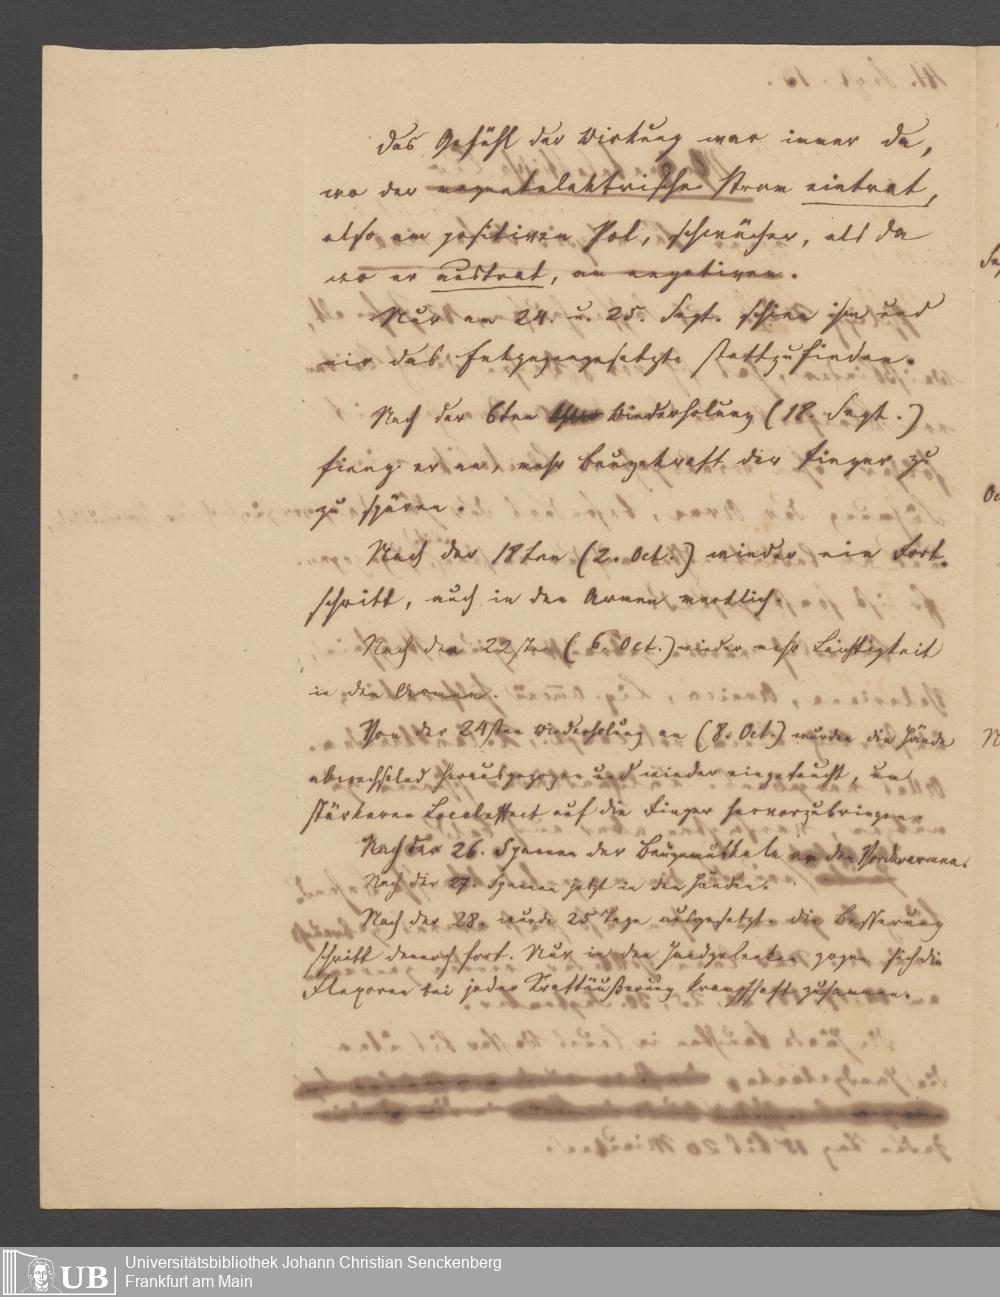 das Gefühl der Wirkung war immer da,
wo der magnetelektrische Strom eintrat,
also am positiven Pol, schwächer, als da
wo er austrat, am negativen.
Nur am 24. u. 25. Sept. schien ihm und
mir das Entgegengesetzte stattzufinden.
Nach der 6ten Wiederholung (18. Sept.)
fieng er an, mehr Beugekraft der Finger zu
zu spüren.
Nach der 18ten (2. Oct.) wieder ein Fort-
schritt, auch in den Armen merklich.
Nach der 22sten (6. Oct.) wieder mehr Leichtigkeit
in den Armen.
Von der 24sten Wiederholung an (8. Oct.) wurden die Hände
abwechselnd herausgezogen und wieder eingetaucht, um
stärkeren Localeffect auf die Finger hervorzubringen.
Nach der 26. Spannen der Beugemuskeln an den Vorderarmen.
Nach der 27. Spannen jetzt in den Händen.
Nach der 28. wurde 25 Tage ausgesetzt. Die Besserung
schritt dennoch fort. Nur in den Handgelenken zogen sich die
Flexoren bei jeder Kraftäußerung krampfhaft zusammen.
UB
Universitätsbibliothek Johann Christian Senckenberg
Frankfurt am Main